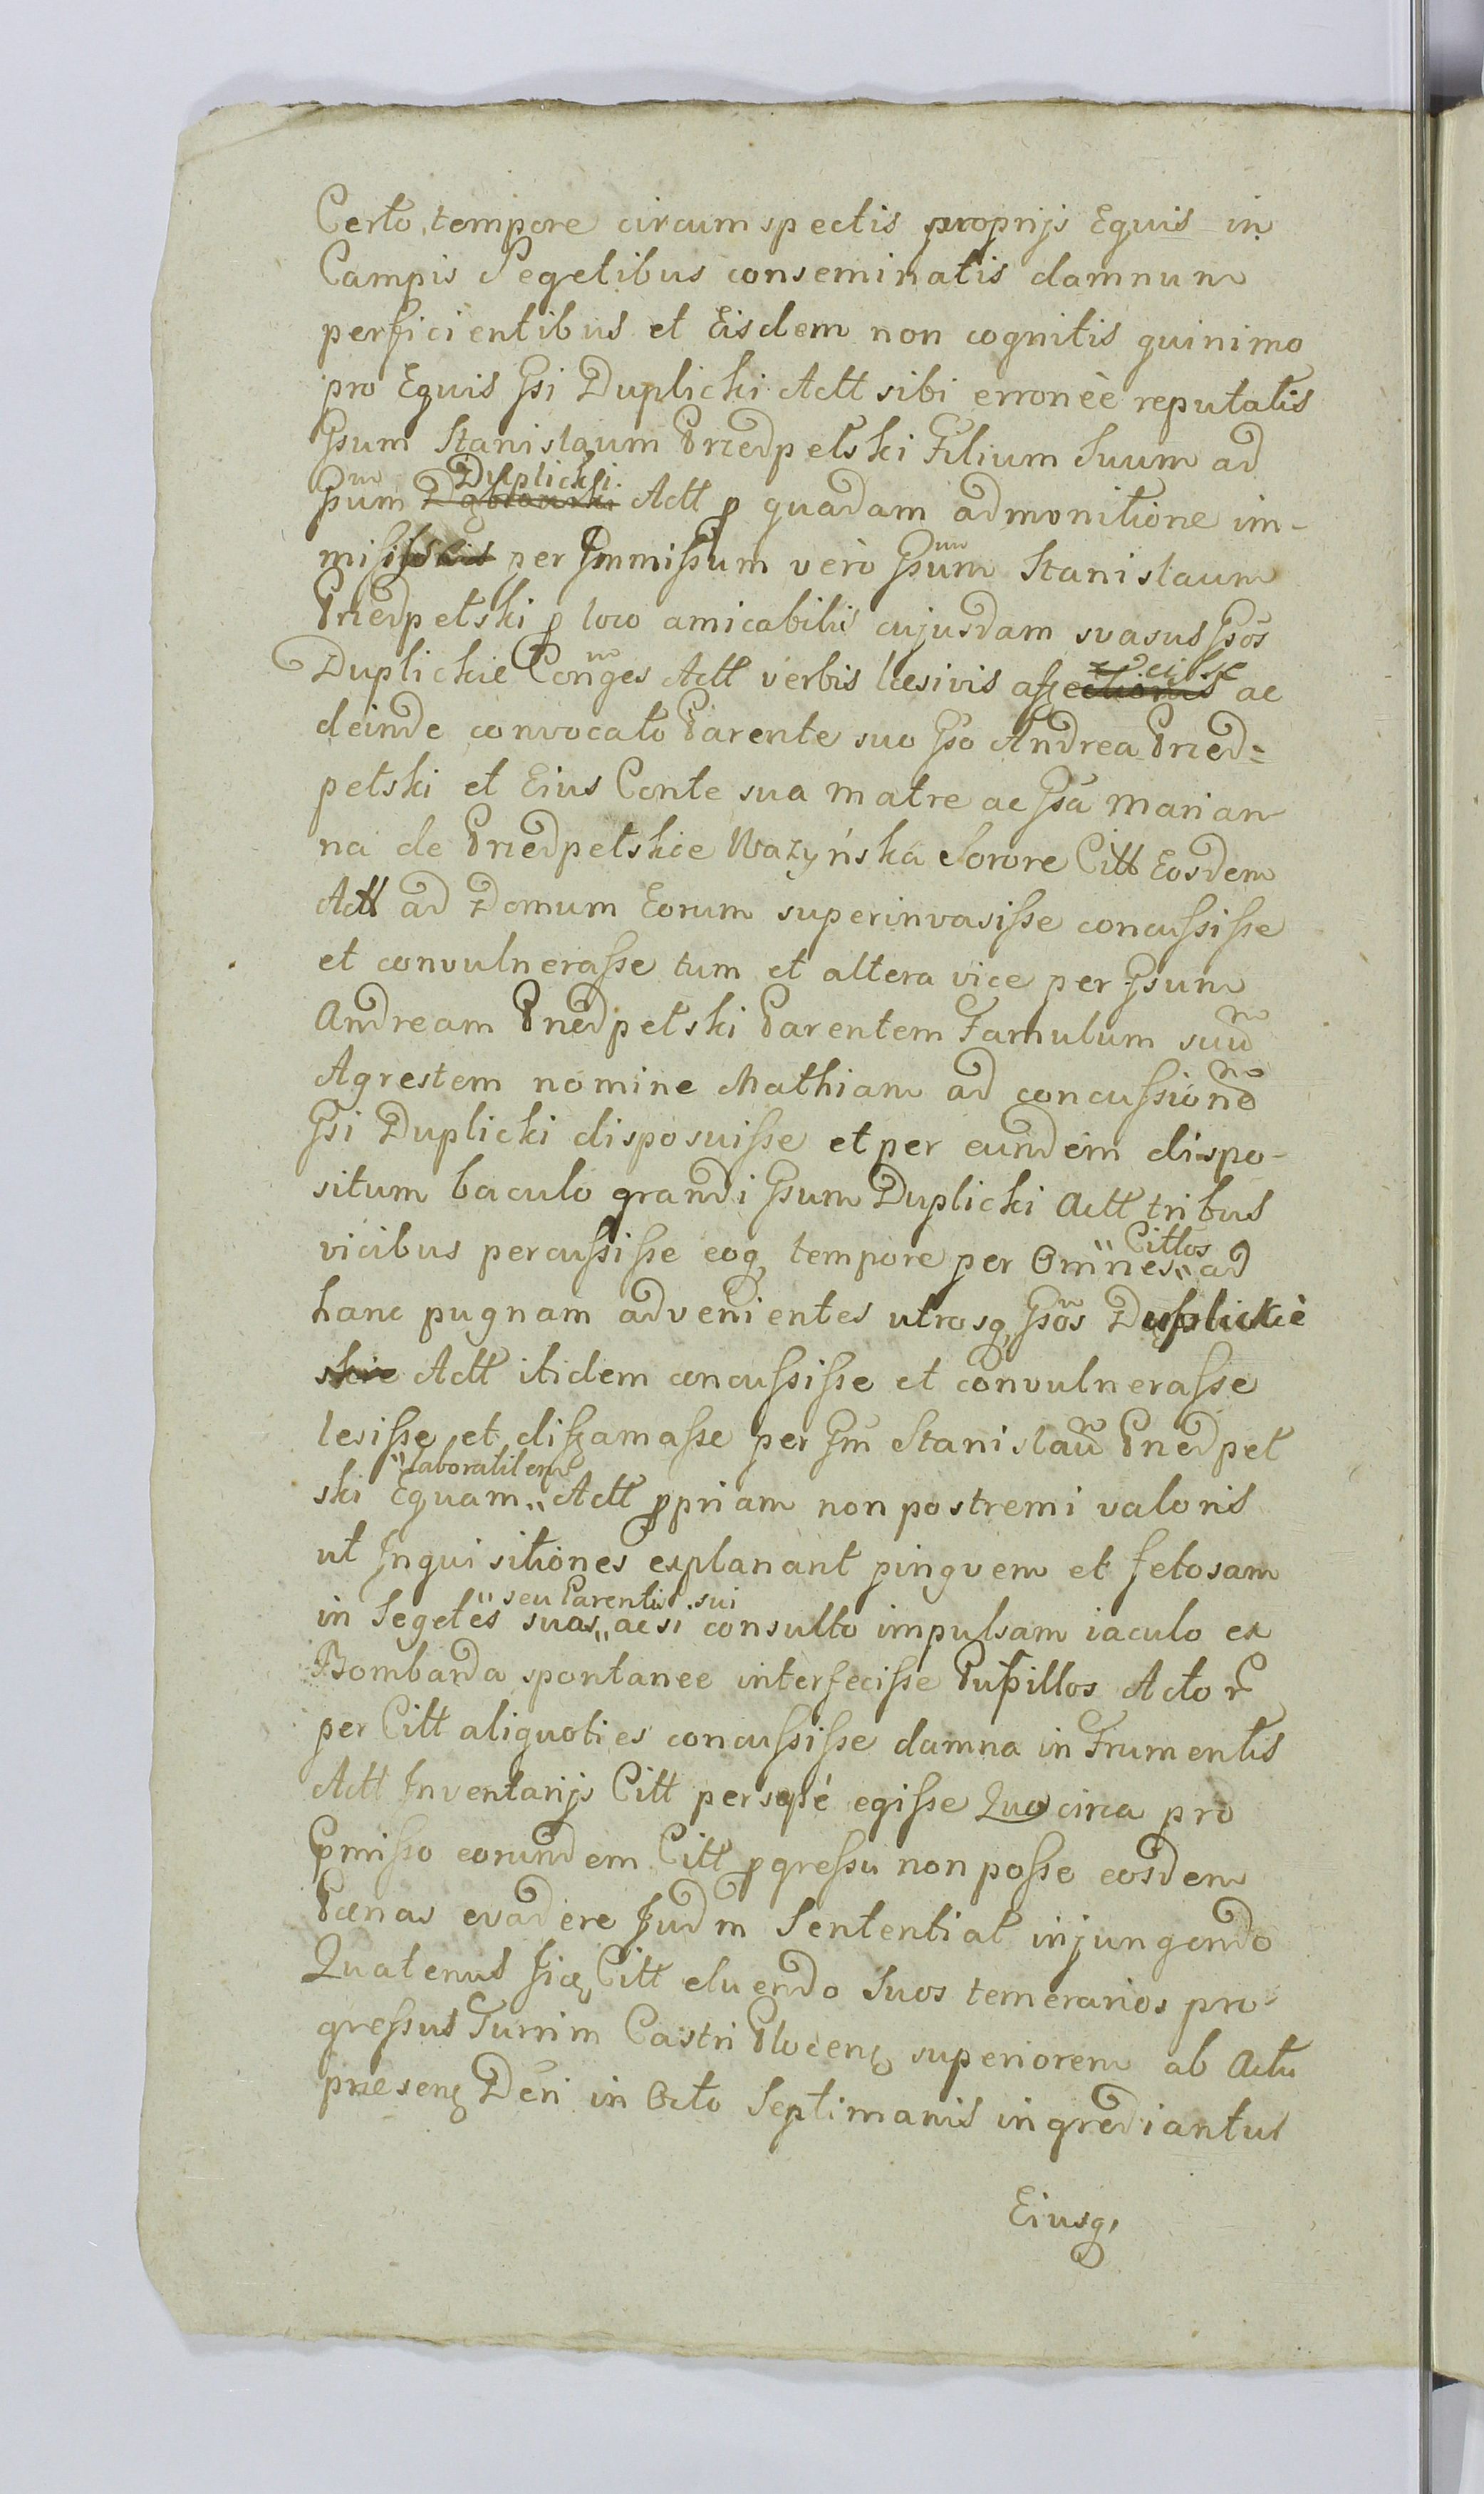 Certo tempore circumspectis proprijs Equis in
Campis Segetibus conseminatis damnum
perficientibus et Eisdem non cognitis quinimo
pro Equis Gsi Duplicki Actt sibi erroneè reputatis
Gsum Stanislaum Przedpelski Filium Suum ad
Duplicki
Gsum Actt p quadam admonitione im-
misisse per Immissum verò Gsum Stanislaum
Przedpelski p loco amicabilis cujusdam svasus Gsos
Duplickie Conges Actt verbis læsivis affecisse ac
deinde convocato Parente suo Gso Andrea Przed=
pelski et Eius Conte sua matre ac Gsa Marian
na de Przedpelskie Wazyńska Sorore Citt Eosdem
Actt ad Domum Eorum superinvasisse concussisse
et convulnerasse tum et altera vice per Gsum
Andream Przedpelski Parentem Famulum suu
Agrestem nomine Mathiam ad concussione
Gsi Duplicki disposuisse et per eundem dispo-
situm baculo grandi Gsum Duplicki Actt tribus
Cittos
vicibus percussisse eoq tempore per Omnes ad
hanc pugnam advenientes utrosq Gsos Duplickiè
skie Actt itidem concussisse et convulnerasse
lesisse et diffamasse per Gm Stanislau Przedpel
laboratilem
ski Equam Actt ppriam non postremi valoris
ut Inquisitiones explanant pinguem et fetosam
seu Parentis sui
in Segetes suas ac si consulto impulsam iaculo ex
Bombarda spontanee interfecisse Pupillos Actor
per Citt aliquoties concussisse damna in Frumentis
Actt Inventarijs Citt persæpé egisse Quo circa pro
Pmisso eorundem Citt pgressu non posse eosdem
Pænas evadere Judm Sententiat injungendo
Quatenus Citt eluendo Suos temerarios pro-
gressus Turrim Castri Plocens superiorem ab Actu
præsens Dcri in Octo Septimanis ingrediantur
Eiusq,